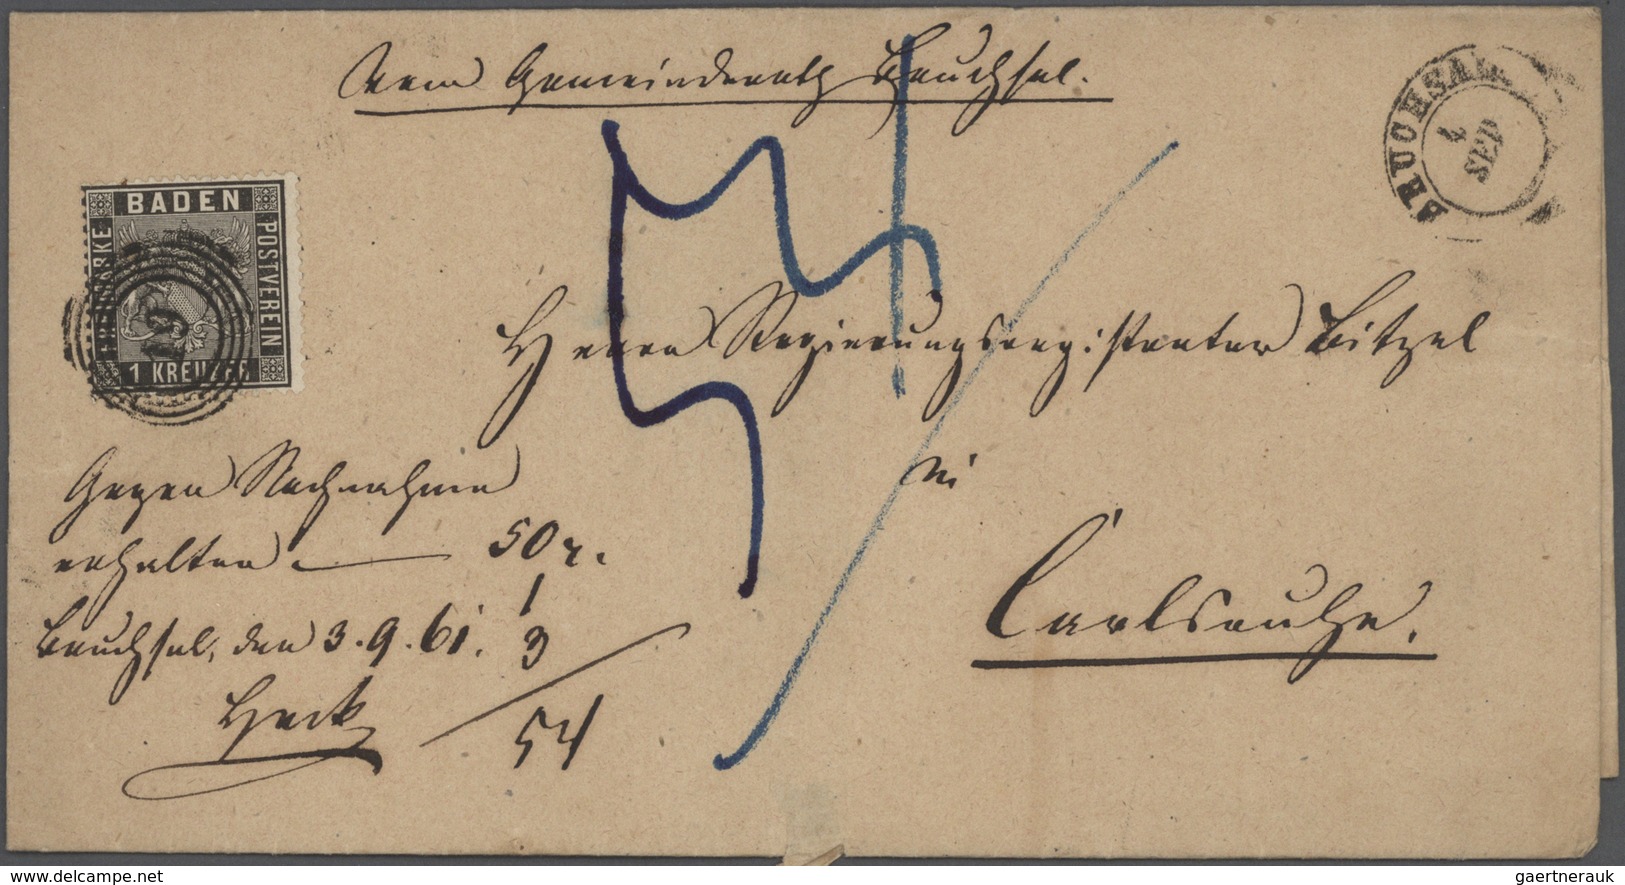 Vom Gemeinderath Bruchsal.
BRUCHSAL
4
SEP
BADEN
FREIMARKE
POSTVEREIN
1 KREUZER
19
54
Herrn Regierungsregistrator Bitzel
in
Carlsruhe.
Gegen Nachnahme
erhalten — 50 r.
1
Bruchsal, den 3.9.61. 3
Heck 54
www.delcampe.net
gaertnerauk